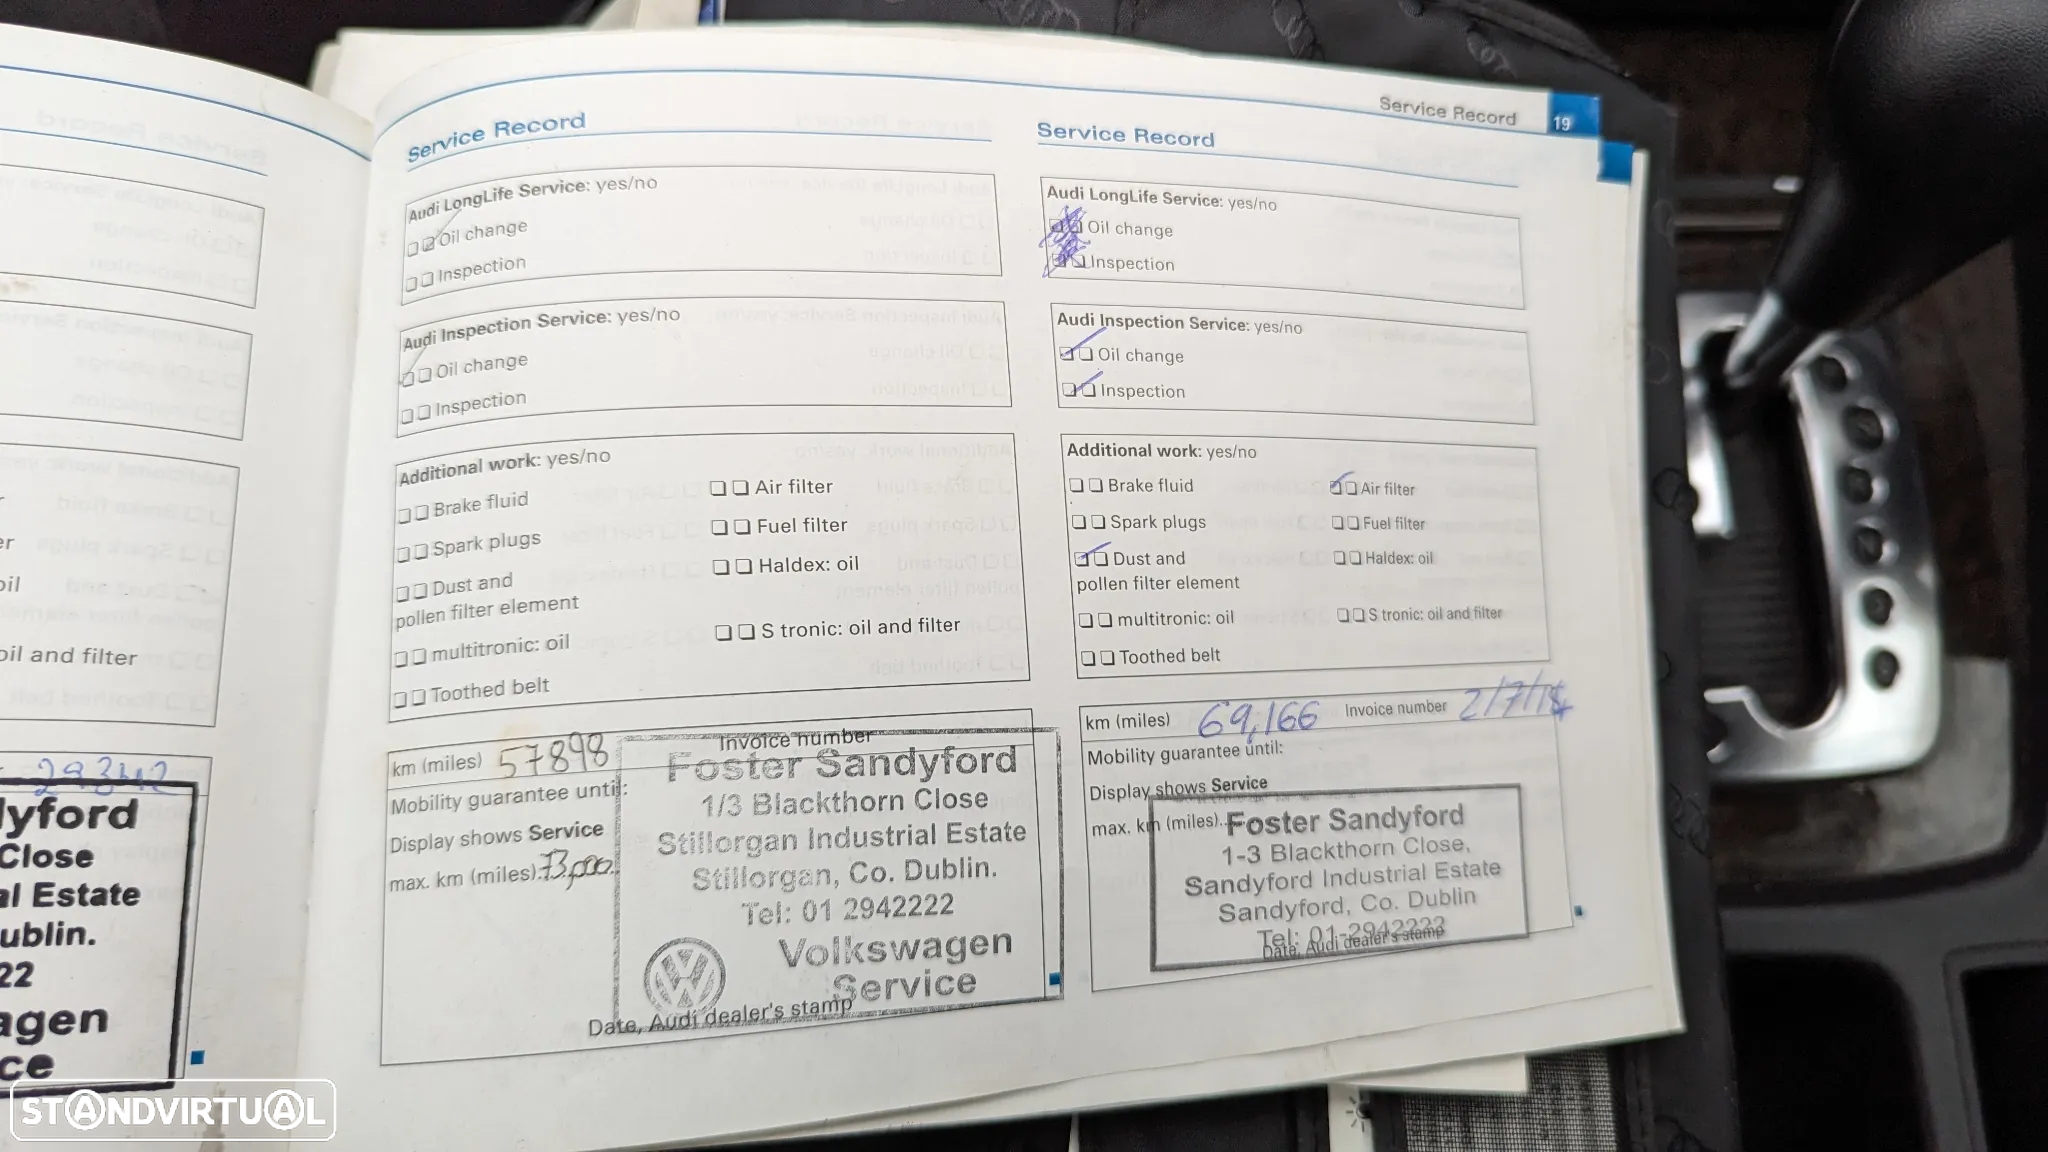 Service Record 19
r
er
oil
oil and filter
29342
lyford
Close
al Estate
ublin.
22
agen
ce
Service Record
Audi LongLife Service: yes/no
Oil change
Inspection
Audi Inspection Service: yes/no
Oil change
Inspection
Additional work: yes/no
Brake fluid
Air filter
Spark plugs
Fuel filter
Dust and
pollen filter element
Haldex: oil
multitronic: oil
S tronic: oil and filter
Toothed belt
km (miles) 57898
Invoice number
Mobility guarantee until:
Display shows Service
max. km (miles). 73,000.
Foster Sandyford
1/3 Blackthorn Close
Stillorgan Industrial Estate
Stillorgan, Co. Dublin.
Tel: 01 2942222
Volkswagen
Service
Date, Audi dealer's stamp
Service Record
Audi LongLife Service: yes/no
Oil change
Inspection
Audi Inspection Service: yes/no
Oil change
Inspection
Additional work: yes/no
Brake fluid
Air filter
Spark plugs
Fuel filter
Dust and
pollen filter element
Haldex: oil
multitronic: oil
S tronic: oil and filter
Toothed belt
km (miles) 69,166 Invoice number
Mobility guarantee until:
Display shows Service
max. km (miles)..
Foster Sandyford
1-3 Blackthorn Close,
Sandyford Industrial Estate
Sandyford, Co. Dublin
Tel: 01-2942222
Date, Audi dealer's stamp
STANDVIRTUAL